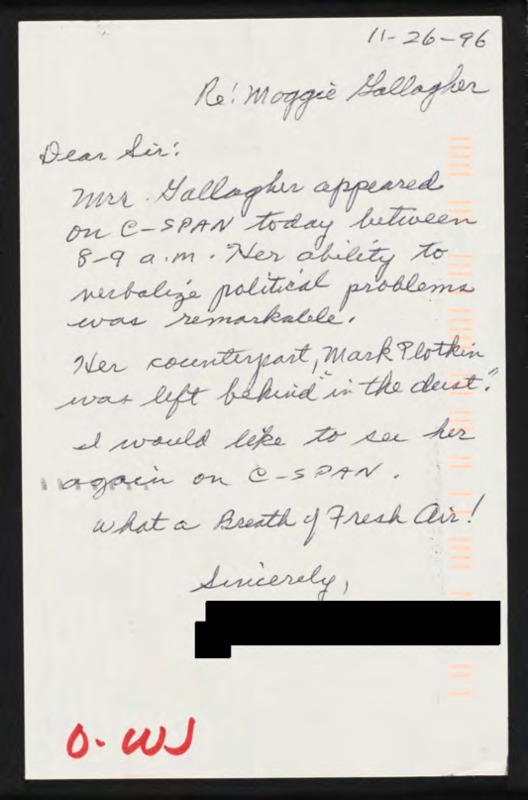 11-26-96
Re: Maggie Gallagher
Dear Sir:
Mrs. Gallagher appeared
on C-SPAN today between
8-9 a.m. Her ability to
verbalize political problems
was remarkable.
Her counterpart, Mark Plotkin
was left behind "in the dust".
I would like to see her
again on C-SPAN.
What a Breath of Fresh Air!
Sincerely,
O-WJ